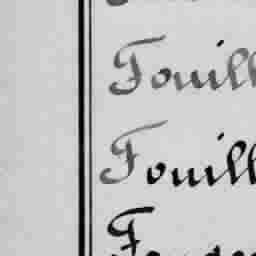 Fouill
Fouill